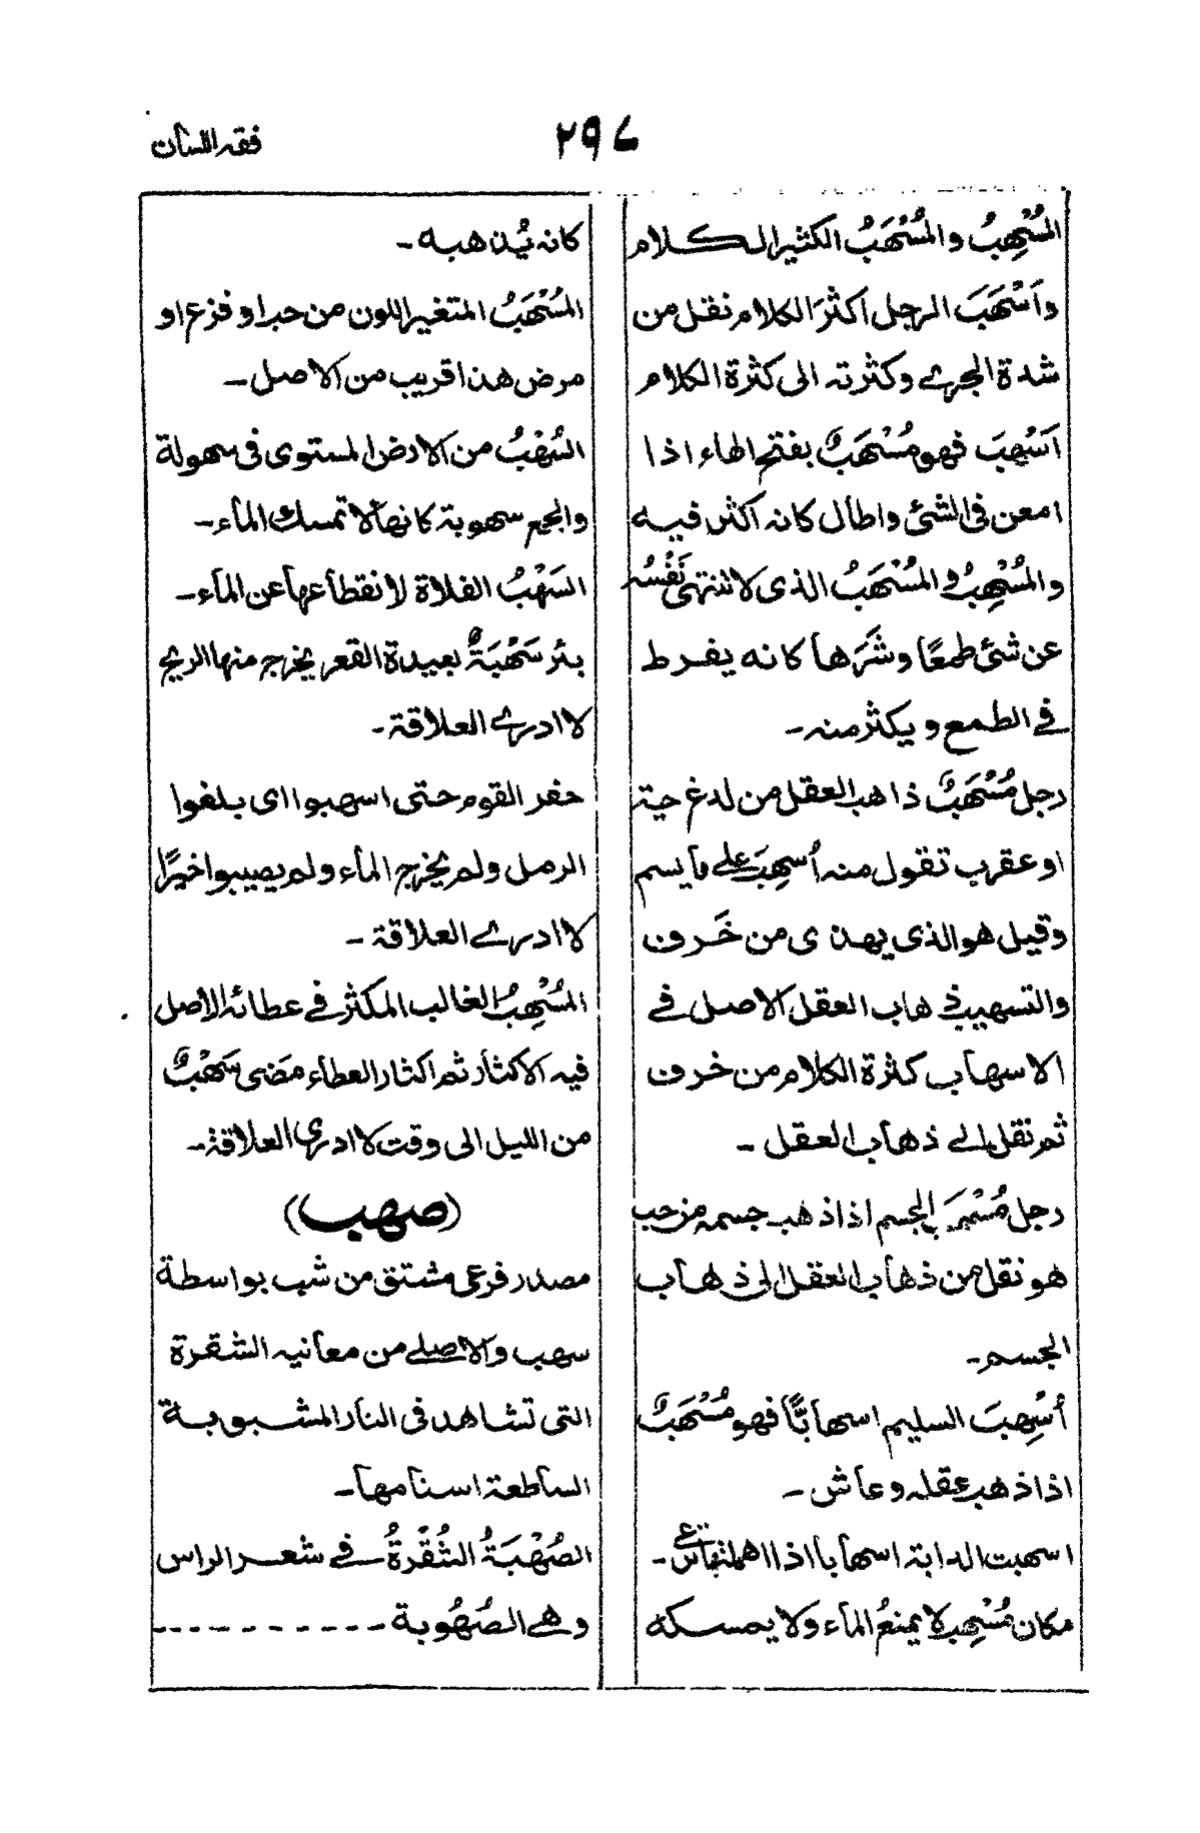 فقه اللسان
۲۹۷
المُسْهِبُ والمُسْهَبُ الكثير الكلام
واَسْهَبَ الرجل اكثرَ الكلام نقل من
شدة الجرى وكثرته الى كثرة الكلام
اَسْهِبَ فهو مُسْهَبٌ بفتح الهاء اذا
امعن فى الشئ واطال كانه اكثر فيه
والمُسْهِبُ و المُسْهَبُ الذى لا تنتهى نَفْسُه
عن شئ طمعًا وشَرَها كانه يفرط
فى الطمع ويكثر منه۔
رجل مُسْهَبٌ ذاهب العقل من لدغ حية
او عقرب تقول منه اُسهِبَ على مايسم
وقيل هو الذى يهذى من خَرف
والتسهيب ذهاب العقل الاصل فى
الاسهاب كثرة الكلام من خرف
ثم نقل الى ذهاب العقل۔
رجل مُسْهَبُ الجسم اذا ذهب جسمه من حب
هو نقل من ذهاب العقل الى ذهاب
الجسم۔
اُسْهِبَ السليم اسهابًا فهو مُسْهَبٌ
اذا ذهب عقله وعاش۔
اسهبت الدابة اسهابا اذا اهملتها ترعى۔
مكان مُسْهِب لا يمنعُ الماء ولا يمسكه
كانه يُذهبه۔
المُسْهَبُ المتغير اللون من حب او فزع او
مرض هذا قريب من الاصل۔
السُهْبُ من الارض المستوى فى سهولة
والجمع سهوبة كانها لا تمسك الماء۔
السَهْبُ الفلاة لانقطاعها عن الماء۔
بئر سَهْبَةٌ بعيدة القعر يخرج منها الريح
لا ادرى العلاقة۔
حفر القوم حتى اسهبوا اى بلغوا
الرمل ولم يخرج الماء ولم يصيبوا خيرًا
لا ادرى العلاقة۔
المُسْهِبُ الغالب المكثر فى عطائه الاصل
فيه الاكثار ثم اكثار العطاء مَضى سَهْبٌ
من الليل الى وقت لا ادرى العلاقة۔
(صهب)
مصدر فرعى مشتق من شب بواسطة
سهب والاصلى من معانيه الشقرة
التى تشاهد فى النار المشبوبة
الساطعة اسنامها۔
الصُهْبَةُ الشُقْرةُ فى شعر الراس
وهى الصُهُوبة - - - - - - - - - -